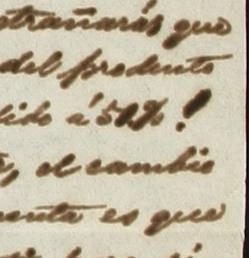 trañarás que
del producto
lido á 50%!
, el cambio
enta es que